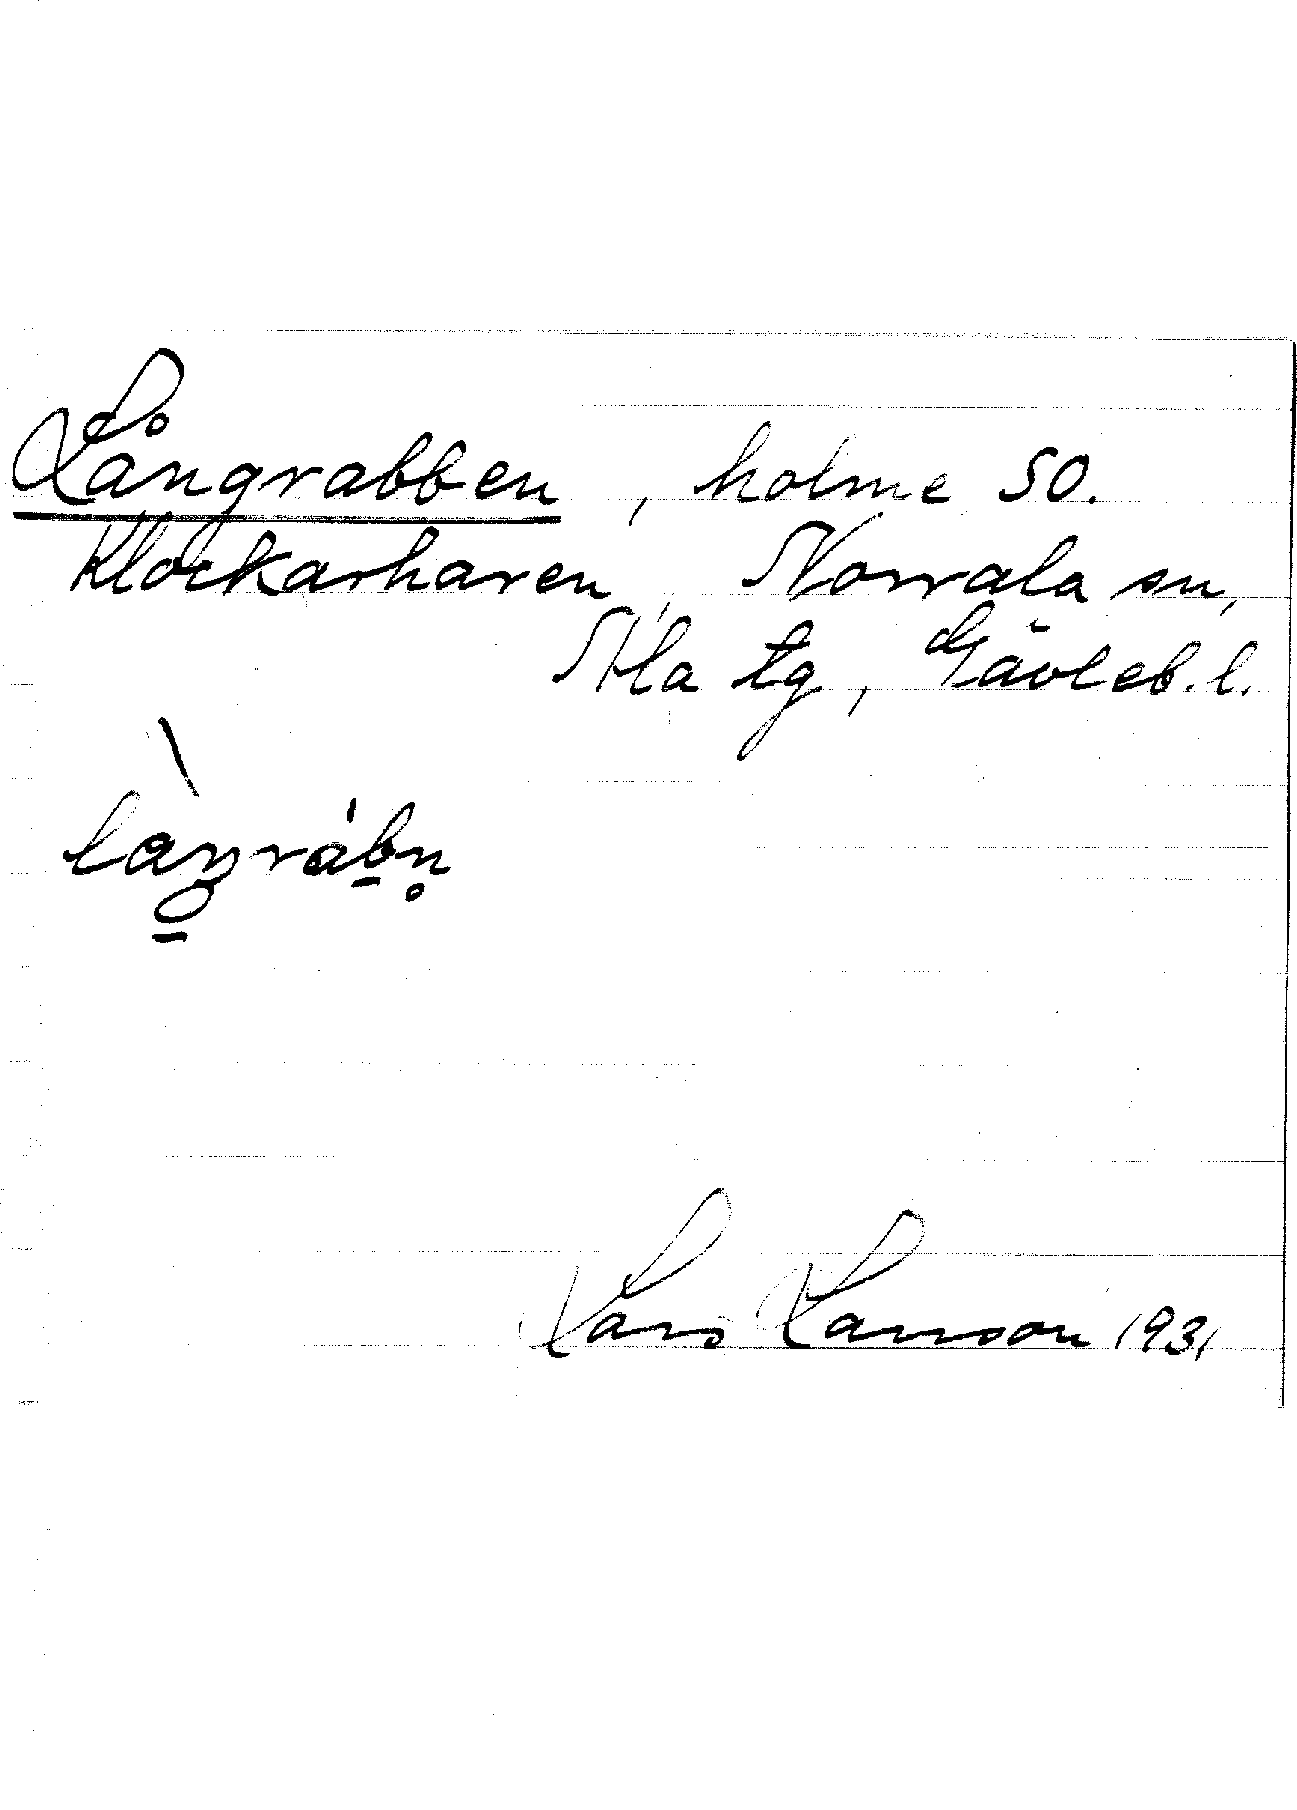 Långrabben, holme SO.
Klockarharen, Norrala sn,
Nla tg, Gävleb. l.
Lars Larsson 1931